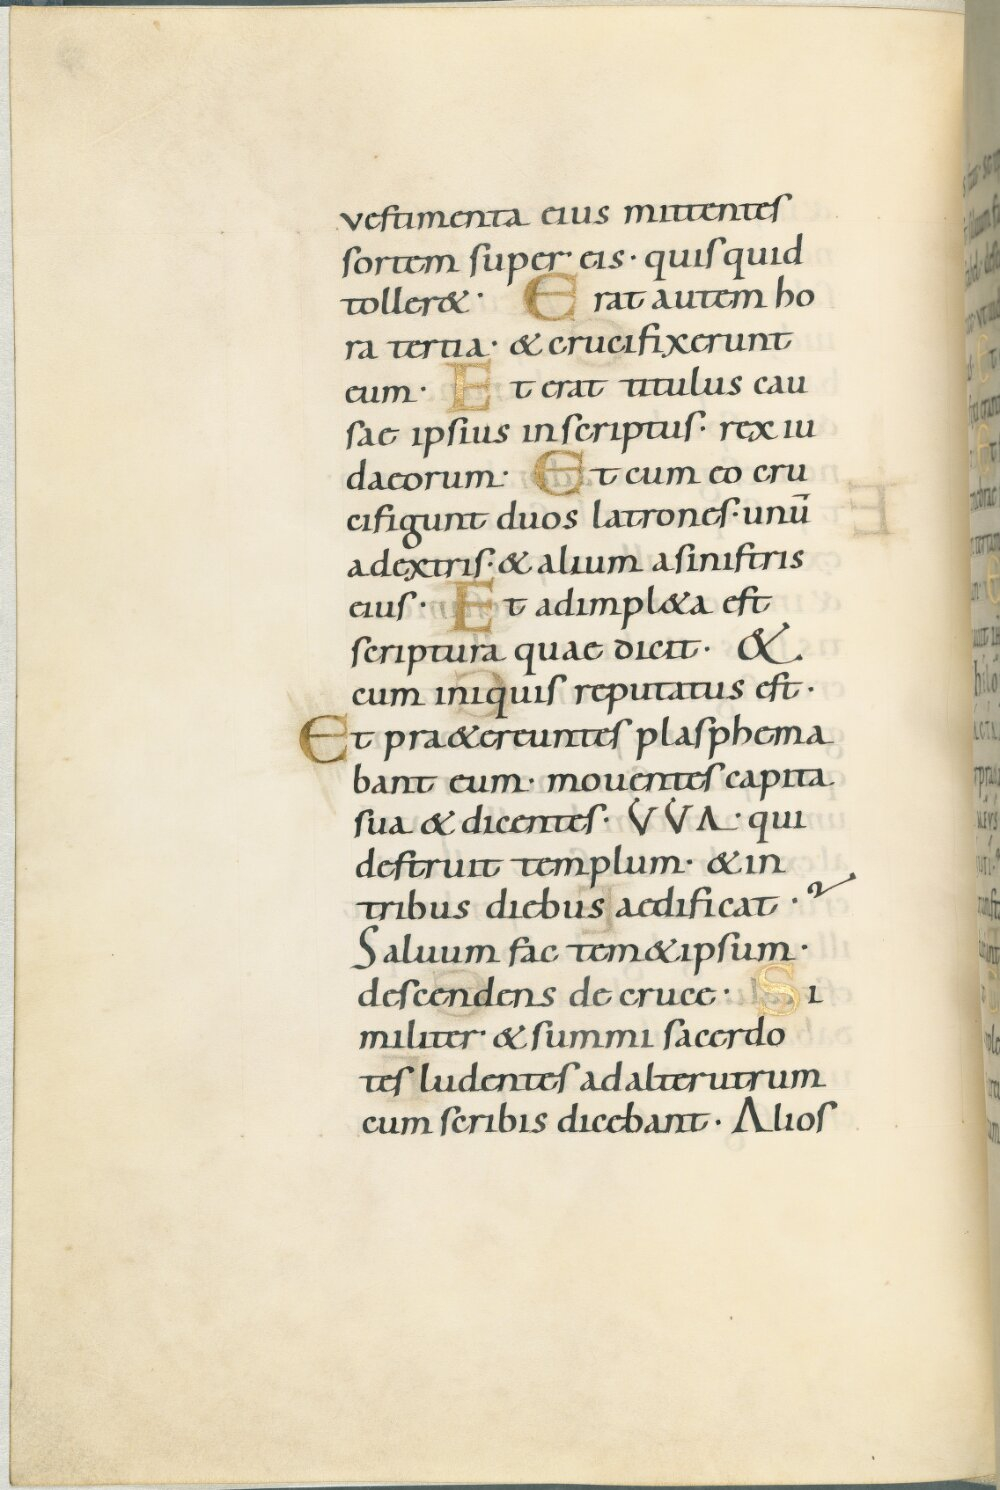 vestimenta eius mittentes
sortem super· eis· quisquid
toller&· Erat autem ho
ra tertia· & crucifixerunt
eum· Et erat titulus cau
sae ipsius inscriptus· rex iu
daeorum· Et cum eo cru
cifigunt duos latrones· unū
adextris· & alium asinistris
eius· Et adimpl&a est
scriptura quae dicit· &
cum iniquis reputatus est·
Et pra&ereuntes plasphema
bant eum· mouentes capita
sua & dicentes· VVA· qui
destruit templum· & in
tribus diebus aedificat·
Saluum fac tem&ipsum·
descendens de cruce· Si
militer· & summi sacerdo
tes ludentes adalterutrum
cum scribis dicebant· Alios